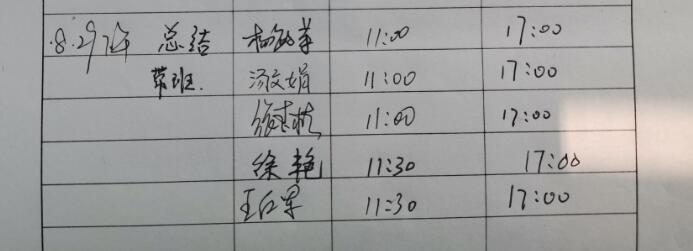 8.29 总结 杨 11:00 17:00
带班. 汤文娟 11:00 17:00
徐 11:00 17:00
徐艳 11:30 17:00
王红军 11:30 17:00